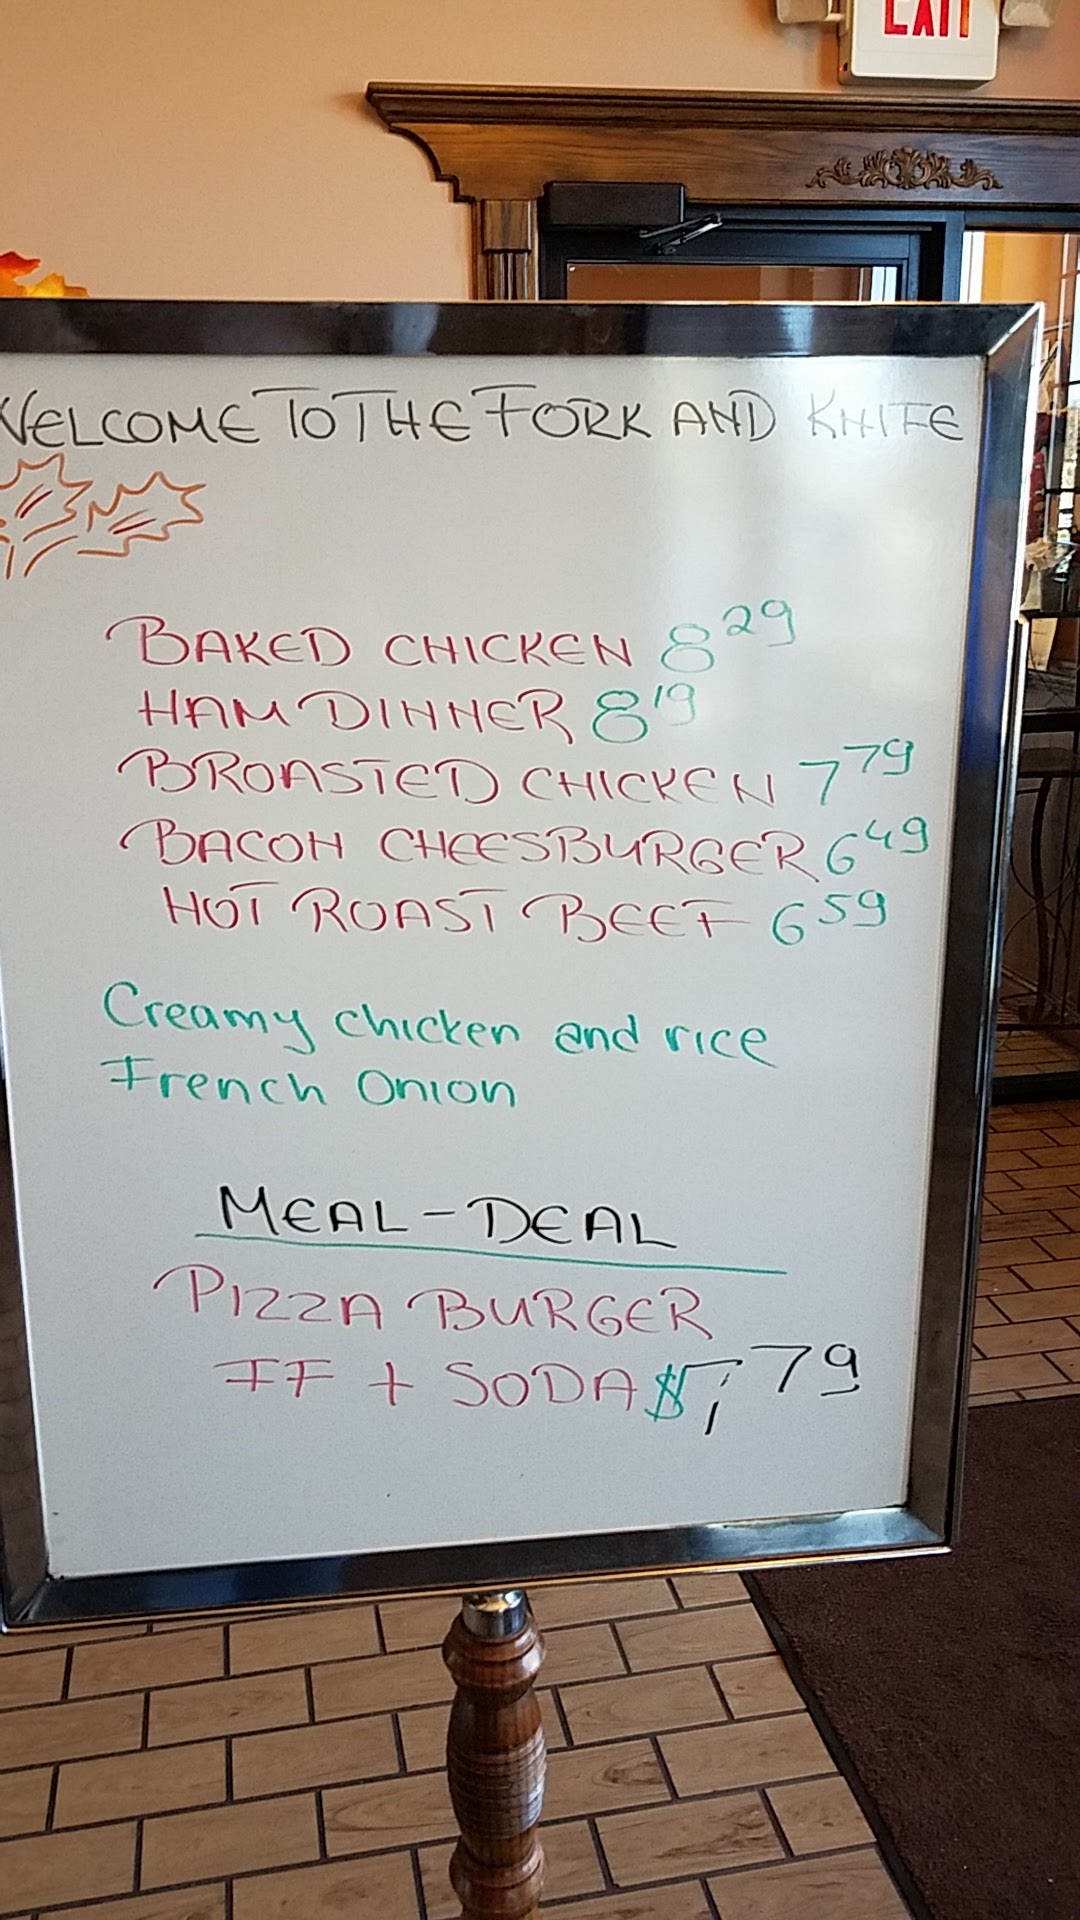 EXIT
WELCOME TO THE FORK AND KNIFE
BAKED CHICKEN 8 29
HAM DINNER 8 19
BROASTED CHICKEN 7 79
BACON CHEESBURGER 6 49
HOT ROAST BEEF 6 59
Creamy chicken and rice
French Onion
MEAL-DEAL
PIZZA BURGER
FF + SODA $7 79